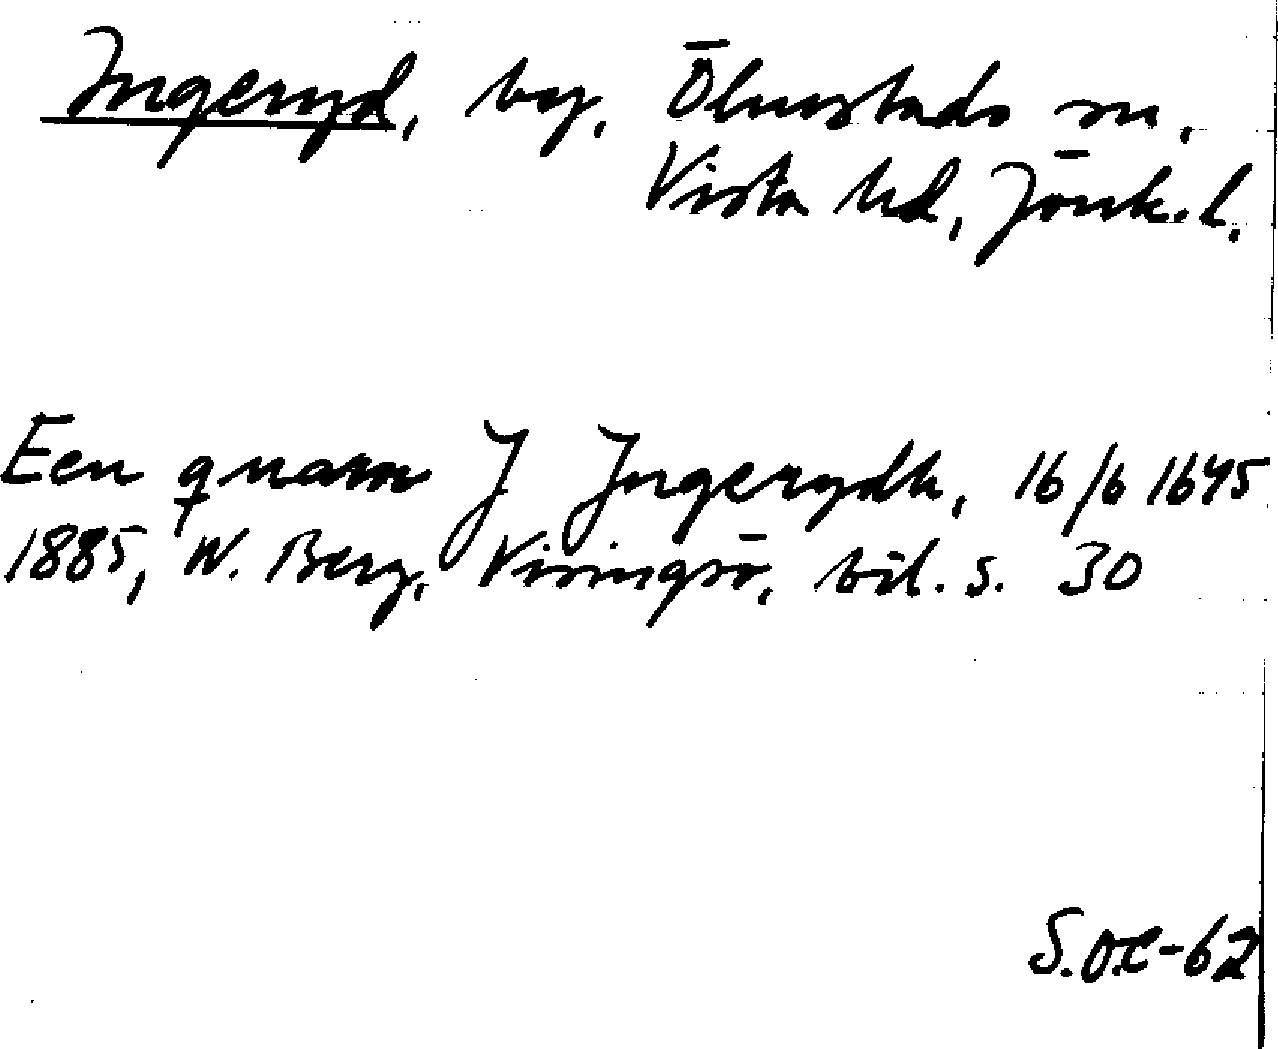 Ingeryd, by, Ölmstads sn,
Vista hd, Jönk. l.
Een quarn J Jngerydh, 16/6 1645
1885, W. Berg, Visingsö, bil. s. 30
S.O.C-62